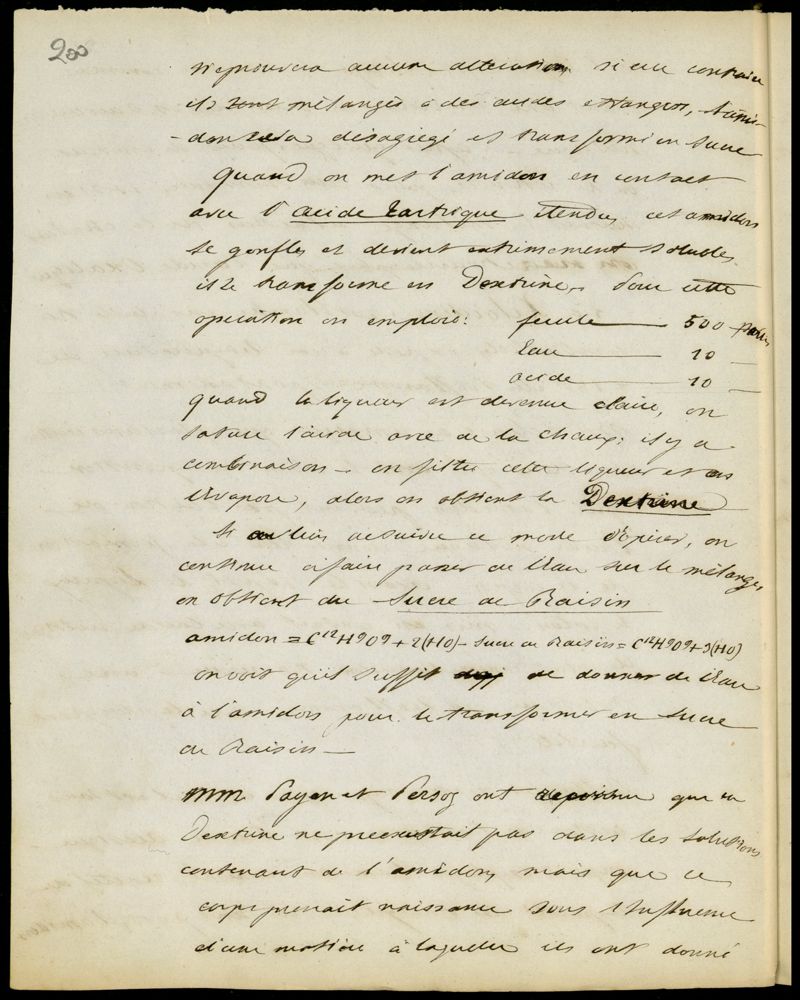 200
n'eprouvera aucune alteration, si au contraire
ils sont mélangés a des acides etrangers, l'ami-
-don sera désagregé et transformé en sucre
quand on met l'amidon en contact
avec l'acide tartrique étendu, cet amidon
se gonfle et devient extrêmement soluble.
il se transforme en Dextrine, Pour cette
operation on emploie: fecule — 500 parties
Eau — 10 —
acide — 10 —
quand la liqueur est devenue claire, on
sature l'acide avec de la chaux: il y a
combinaison - on filtre cette liqueur et on
l'évapore, alors on obtient la Dextrine
Si au lieu de suivre ce mode d'opérer, on
continue à faire passer de l'Eau sur le mélange
on obtient du Sucre de Raisin
amidon = C12H9O9 + 2(HO) - Sucre de Raisin = C12H9O9 + 5(HO)
on voit qu'il suffit de donner de l'Eau
à l'amidon pour le transformer en Sucre
de Raisin —
MM Payen et Persoz ont que la
Dextrine ne preexistait pas dans les solutions
contenant de l'amidon, mais que ce
corps prenait naissance sous l'influence
d'une matière à laquelle ils ont donné